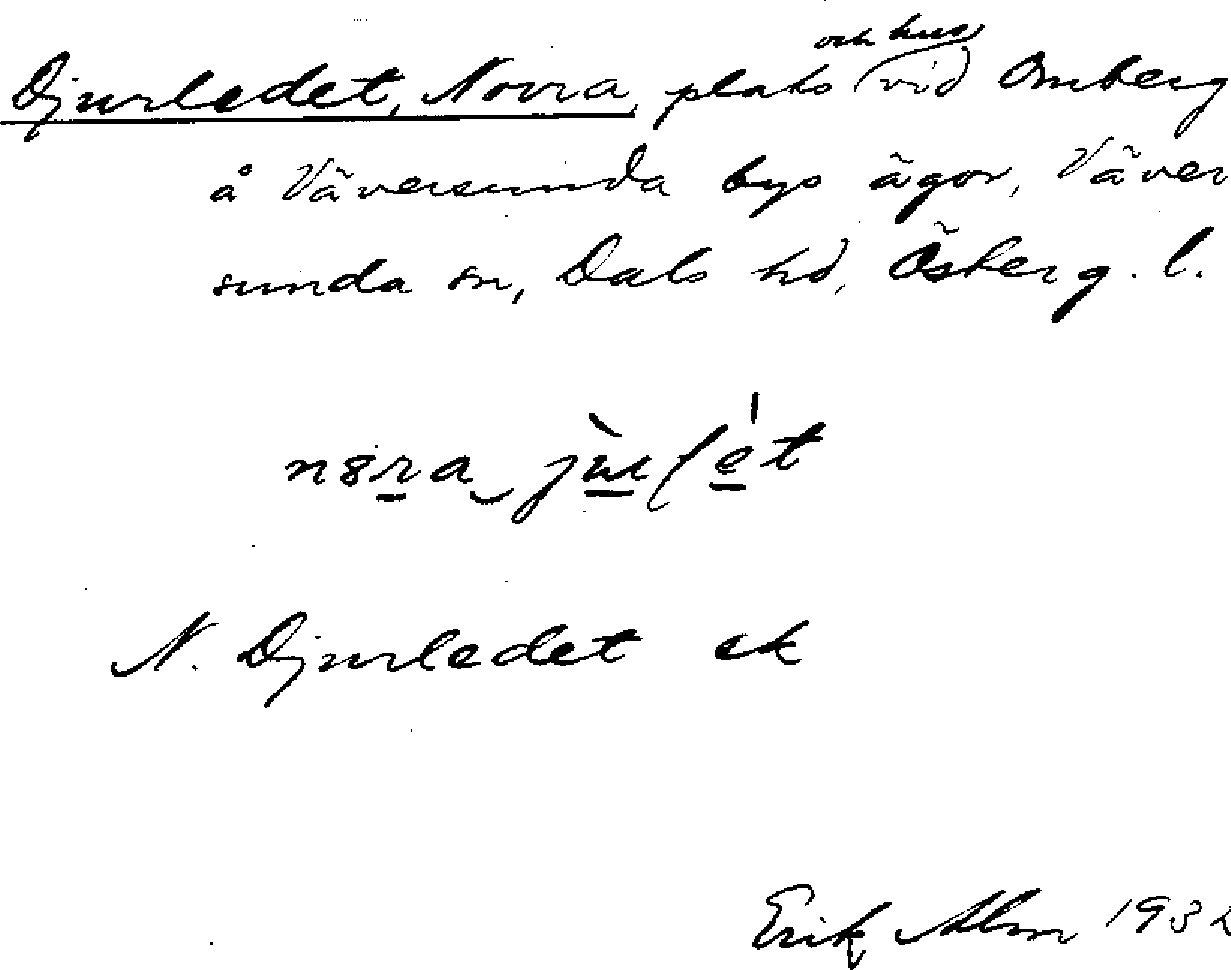 Djurledet, Norra, plats och hus vid Omberg
å Väversunda bys ägor, Väver
sunda sn, Dals hd, Österg. l.
N. Djurledet ek
Erik Alm 1932